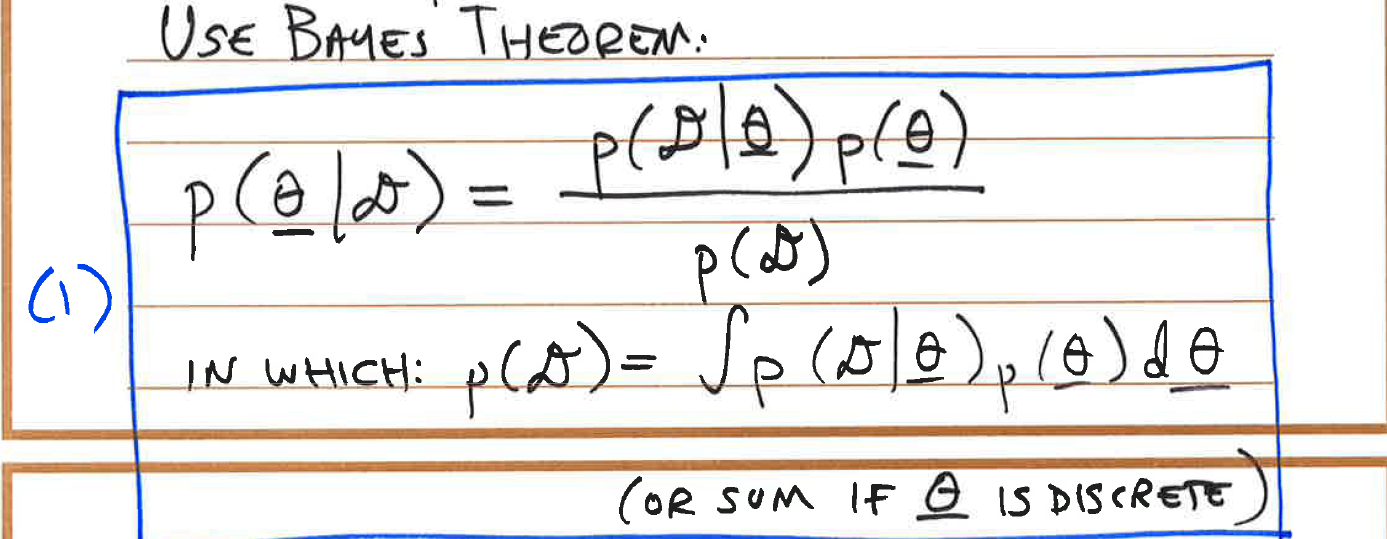 USE BAYES' THEOREM:
p(θ|𝒟) = p(𝒟|θ) p(θ) / p(𝒟)
(1)
IN WHICH: p(𝒟) = ∫ p(𝒟|θ) p(θ) dθ
(OR SUM IF θ IS DISCRETE)